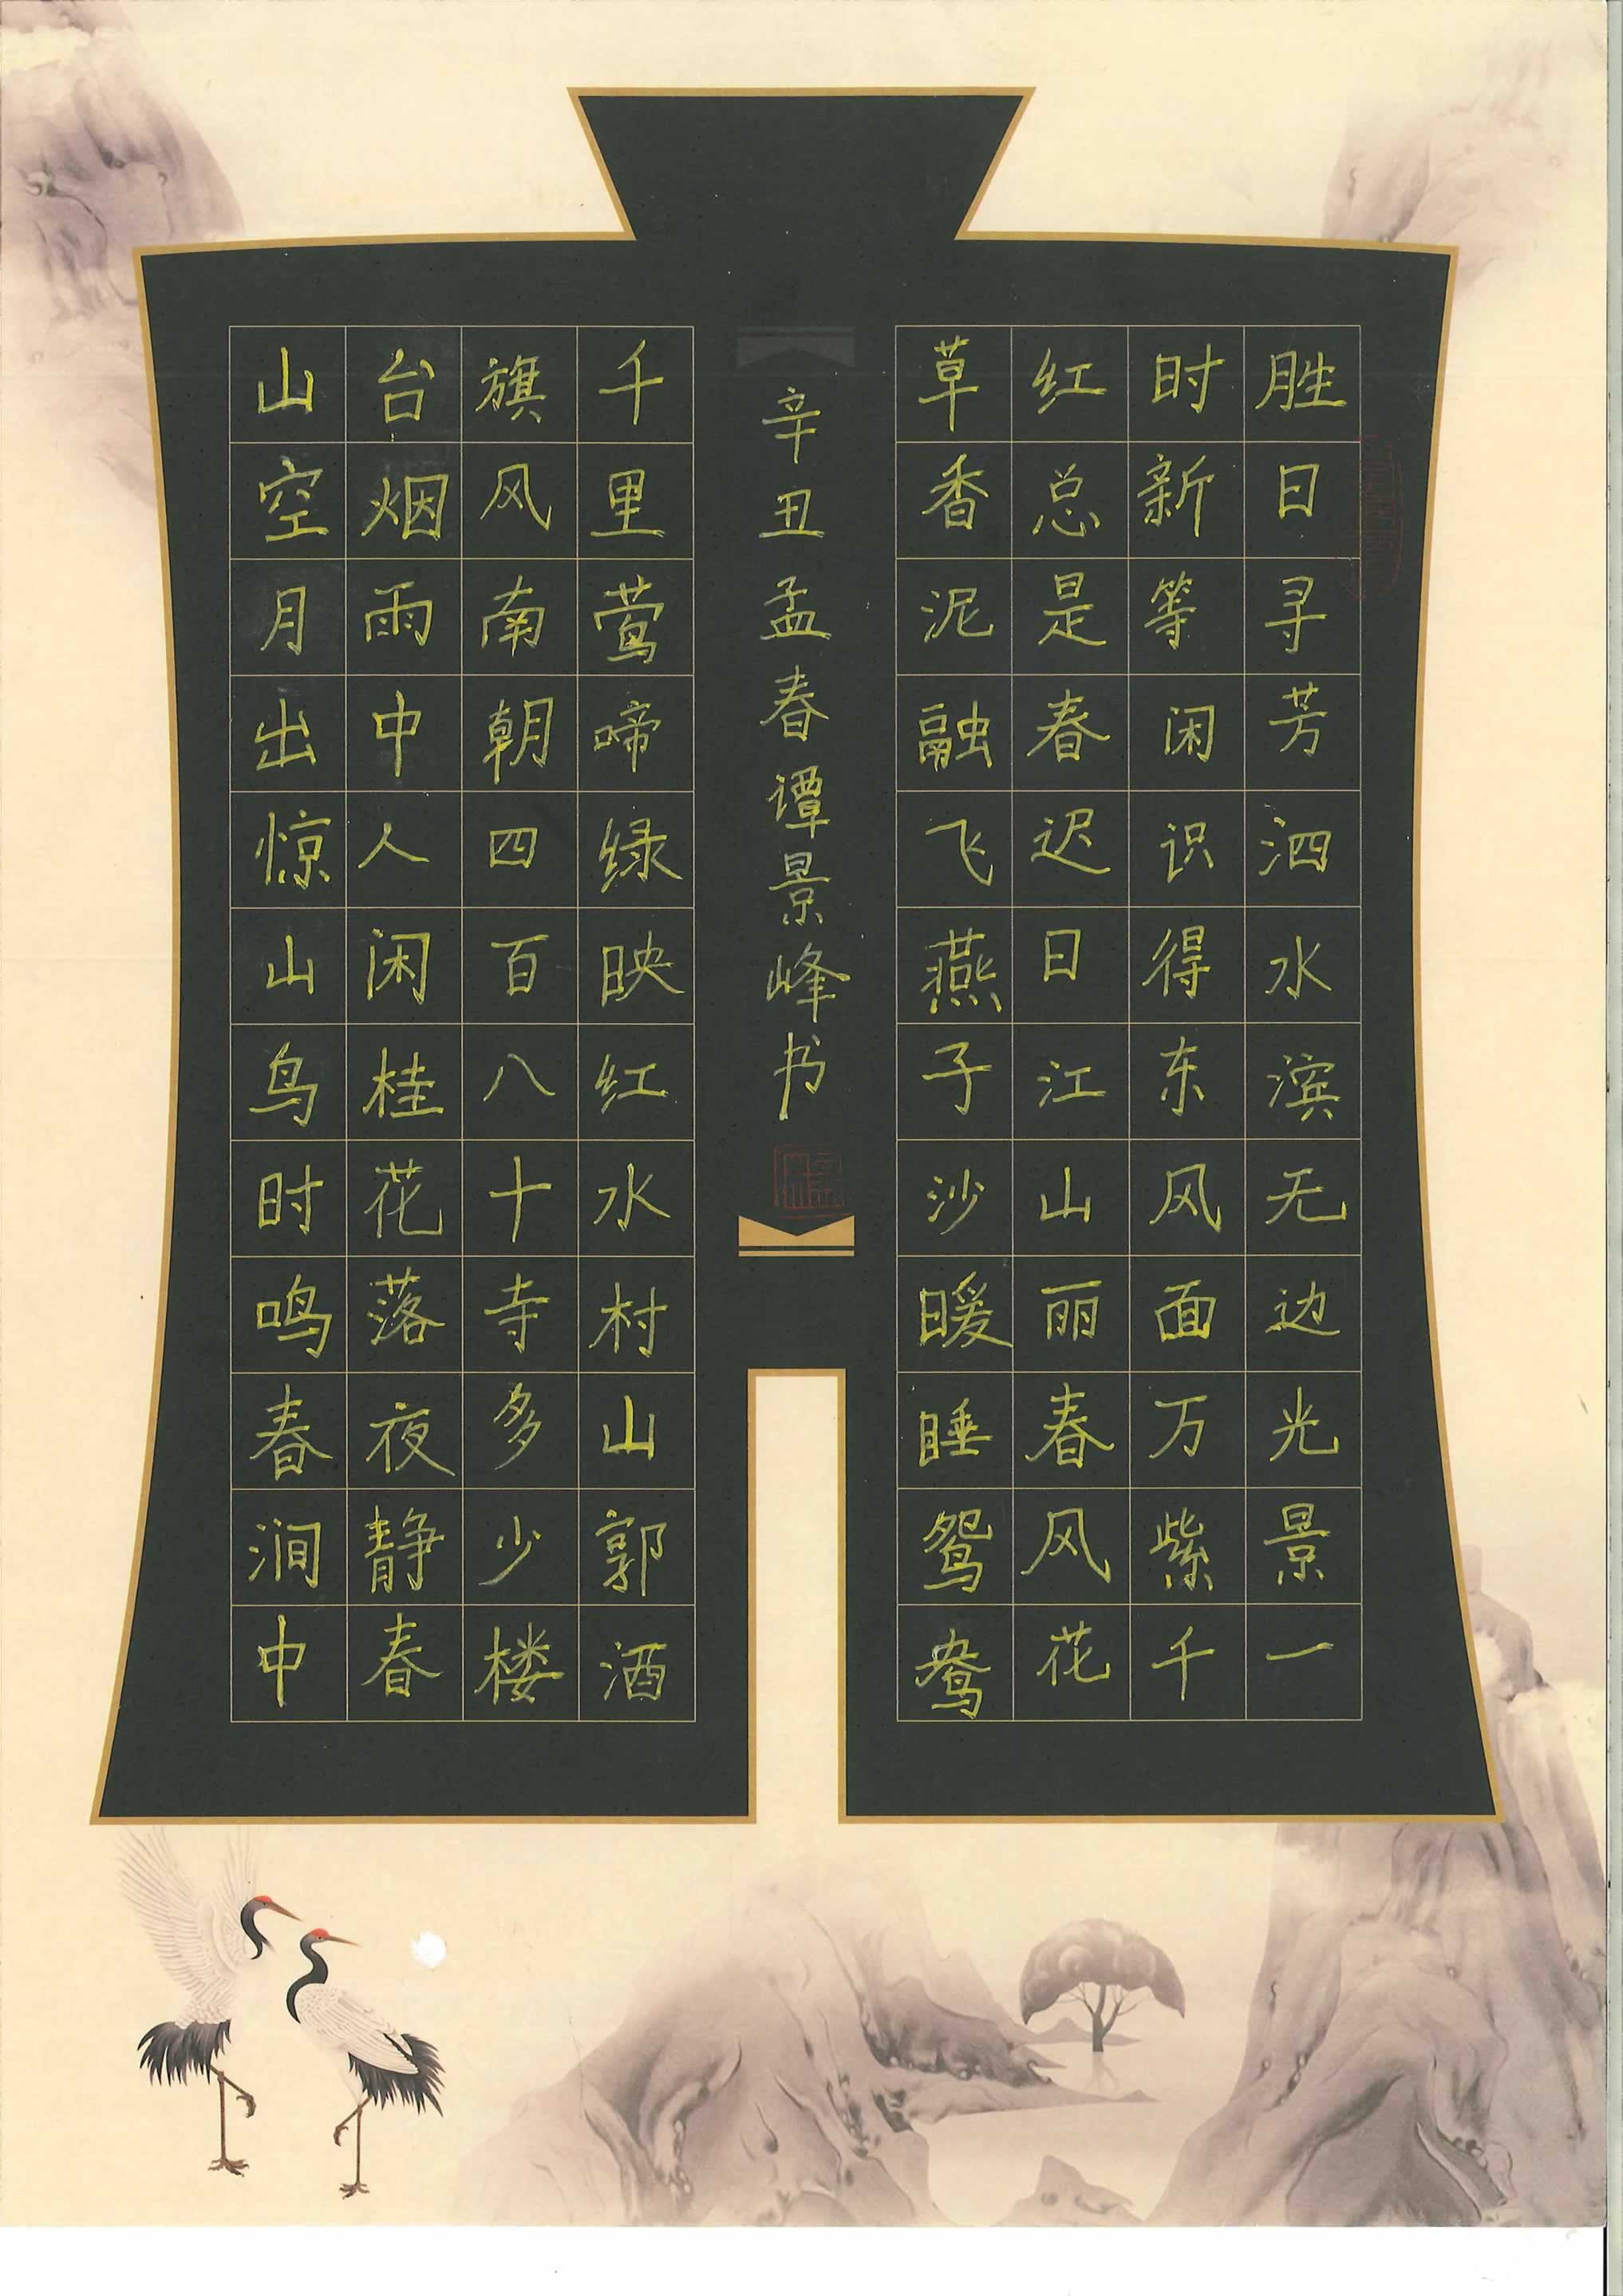 胜日寻芳泗水滨无边光景一
时新等闲识得东风面万紫千
红总是春迟日江山丽春风花
草香泥融飞燕子沙暖睡鸳鸯
辛丑孟春谭景峰书
千里莺啼绿映红水村山郭酒
旗风南朝四百八十寺多少楼
台烟雨中人闲桂花落夜静春
山空月出惊山鸟时鸣春涧中